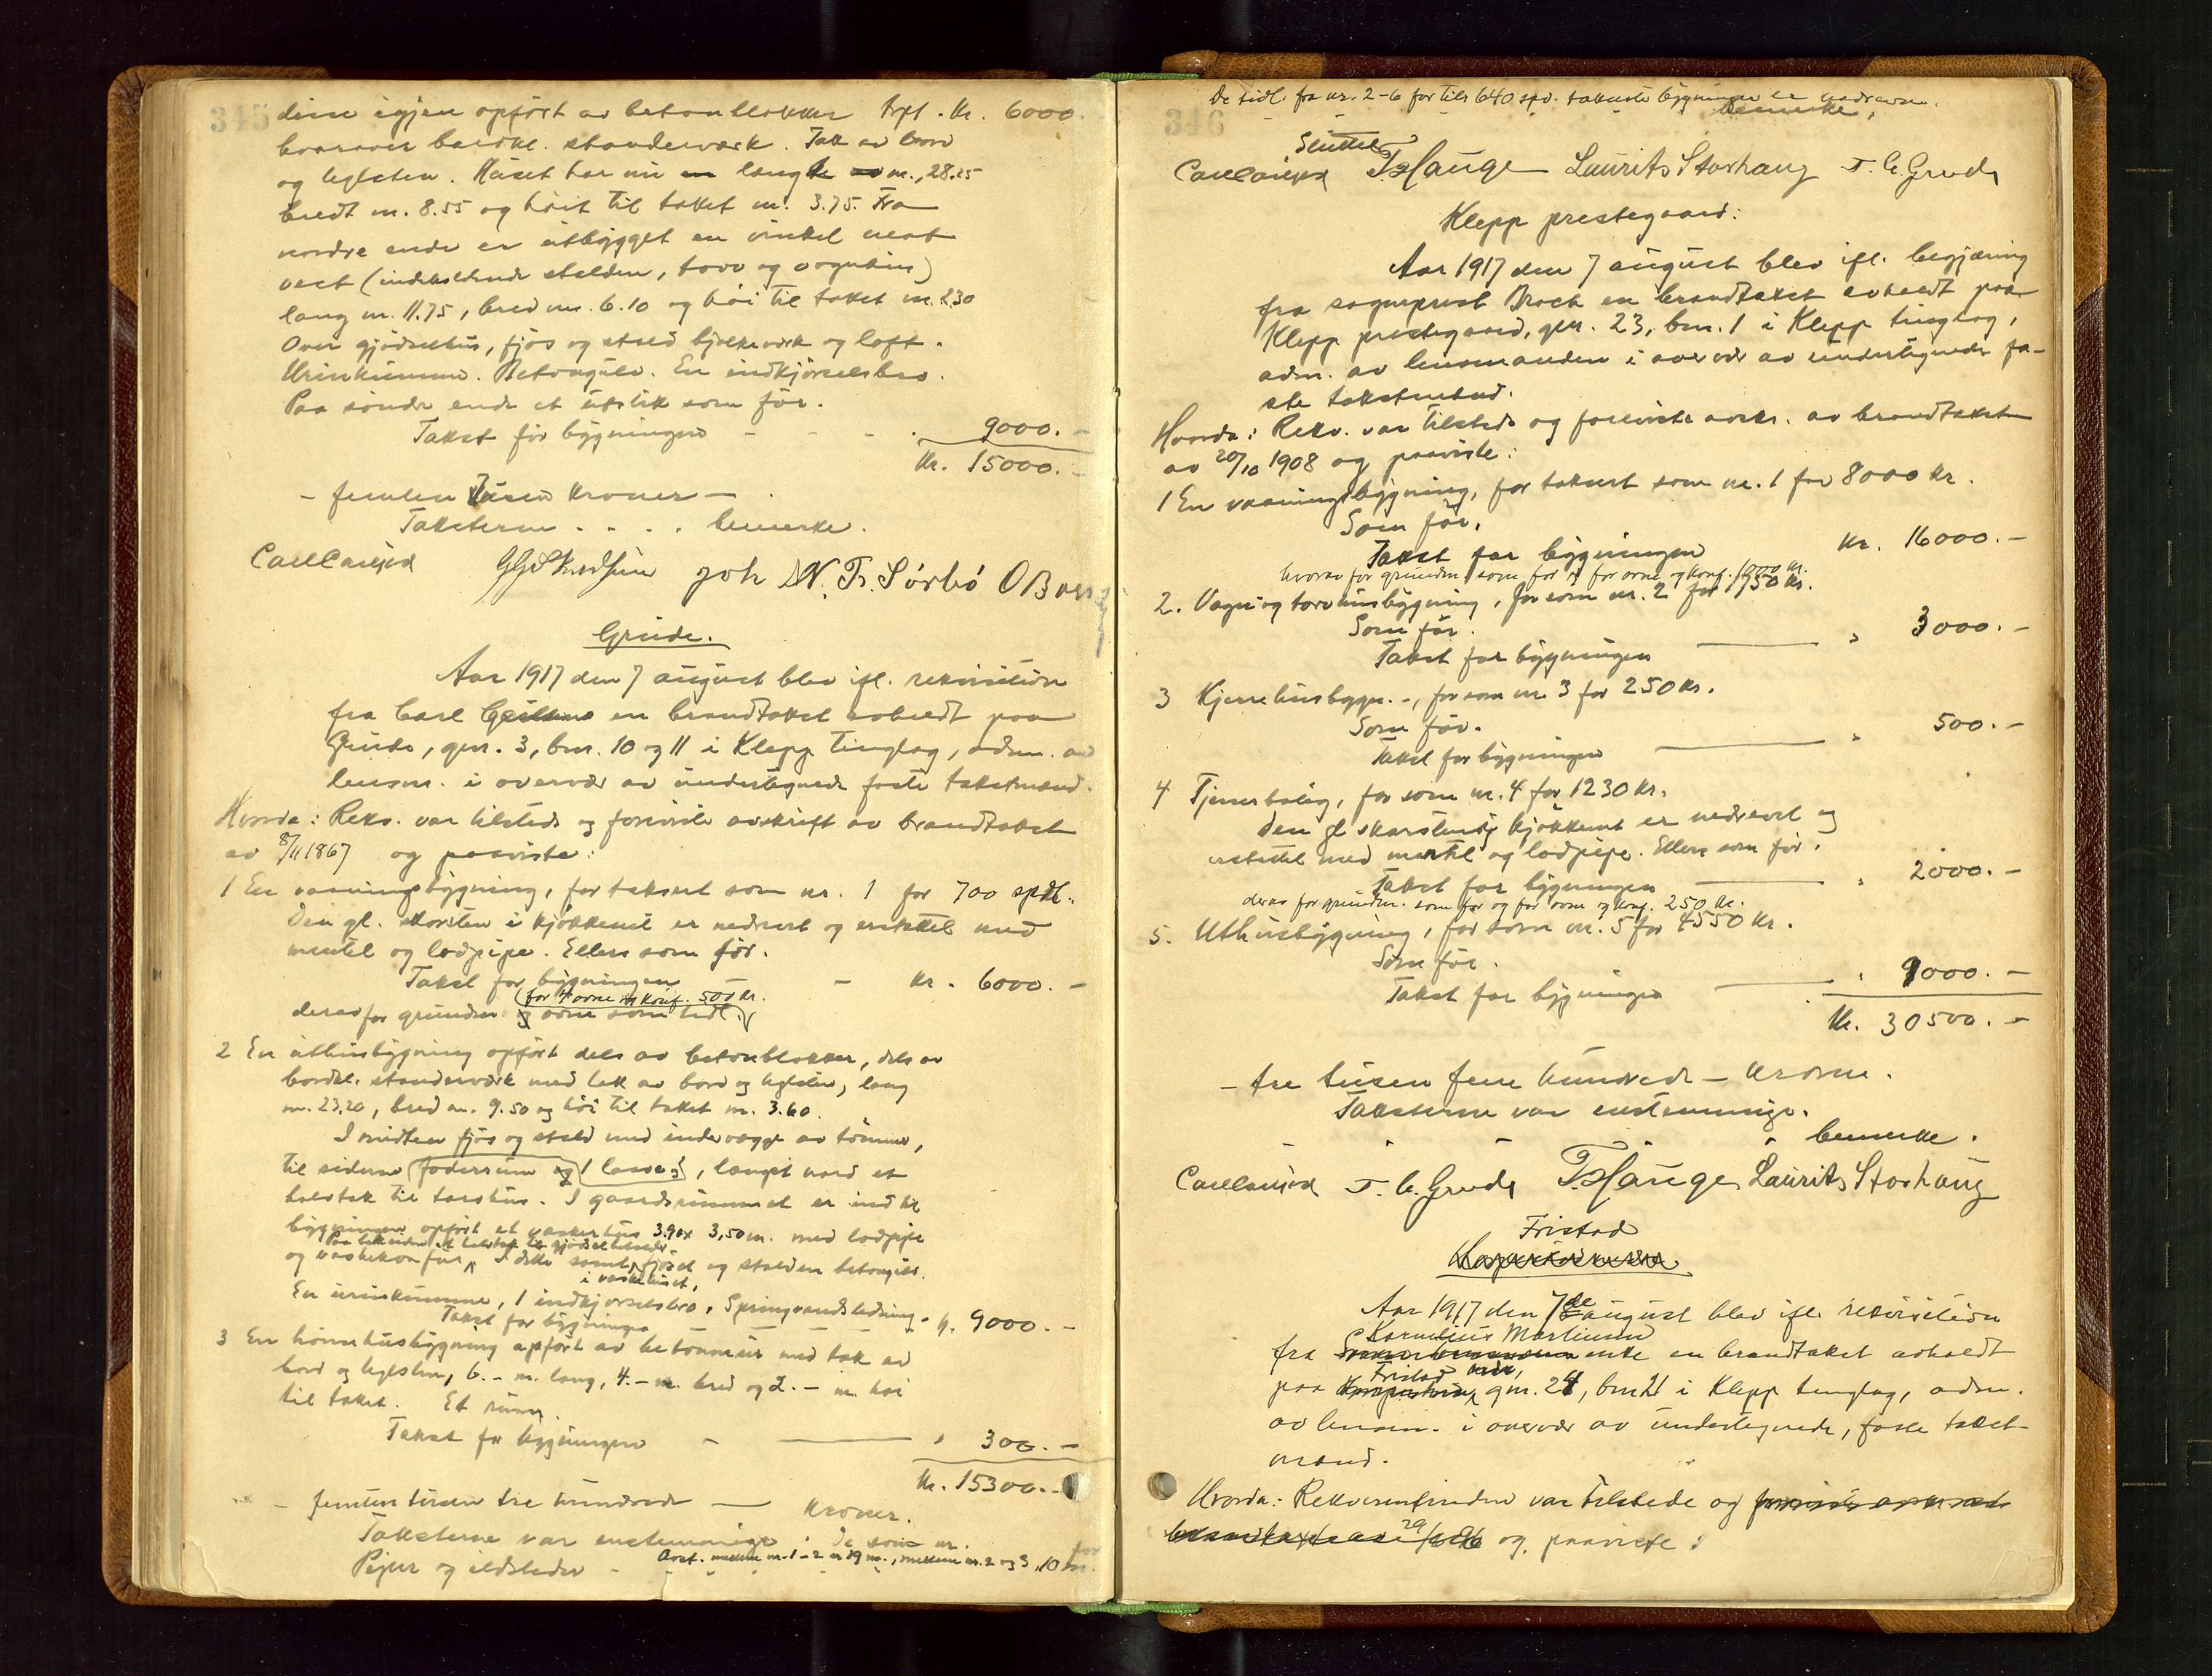 345
disse igjen opført av betonblokker trpt. Kr. 6000.
hvorover bordkl. standerværk. Tak av bord
og teglsten. Huset har nu længde m. 28.25
bredt m. 8.55 og höit til taket m. 3.75. Fra
nordre ende er utbygget en vinkel mot
vest (indeholdende stalden, torv og vognhus)
lang m. 11.75, bred m. 6.10 og höi til taket m. 2.30
Over gjödselhus, fjös og stald bjelkeværk og loft.
Urinkumme. Betongulv. En indkjörselsbro.
Paa söndre ende et utstik som för.
Takst for bygningen - - - 9000.-
Kr. 15000.-
- femten tusen kroner -
Taksterne . . . . bemerke.
Carl Carlsen Joh N. Tr. Sörbö O Borr
Grude.
Aar 1917 den 7 august blev ifl. rekvisition
fra Carl en brandtakst avholdt paa
Grude, gnr. 3, bnr. 10 og 11 i Klepp tinglag, adm. av
lensm. i overvær av undertegnede faste takstmænd.
Hvorda: Rekv. var tilstede og foreviste avskrift av brandtakst
av 8/11 1867 og paaviste:
1 En vaaningsbygning, før taksert som nr. 1 for 700 spdl.
Den gl. skorsten i kjøkkenet er nedrevet og erstattet med
mantel og lodpipe. Ellers som för.
Takst for bygningen - Kr. 6000.-
(for 4 ovne og komf. 500 kr.
derav for grunden og ovne som tidl.)
2 En uthusbygning opført dels av betonblokker, dels av
bordkl. standerværk med tak av bord og teglsten, lang
m. 23.20, bred m. 9.50 og höi til taket m. 3.60.
I midten fjös og stald med indervægge av tömmer,
til siderne foderrum og 1 laave, længst nord et
halvtak til torvhus. I gaardsrummet er ind til
bygningen opført et vaskerhus 3.90 x 3,50 m. med lodpipe
og vaskekomfur, I dette samt fjöset og stalden betongulv.
i vaskehuset,
En urinkumme, 1 indkjörselsbro, Springvandsledning.
Takst for bygningen " 9000.-
3 En hönsehusbygning opført av betonmur med tak av
bord og teglsten, 6.- m. lang, 4.- m. bred og 2.- m. höi
til taket. Et rum.
Takst for bygningen - " 300.-
Kr. 15300.-
- femten tusen tre hundrede - Kroner.
Taksterne var enstemmige. De som nr.
Avst. mellem nr. 1-2 er 19 m., mellem nr. 2 og 3, 10 m.
Pejser og ildsteder -
346
De tidl. fra nr. 2-6 for tils. 640 spd. takserte bygninger er nedrevne.
bemerke,
Sluttet
Carl Carlsen T. Hauge Laurits Storhaug T. C. Grude
Klepp prestegaard:
Aar 1917 den 7 august blev ifl. begjæring
fra sogneprest Broch en brandtakst avholdt paa
Klepp prestegaard, gnr. 23, bnr. 1 i Klepp tinglag,
adm. av lensmanden i overvær av undertegnede fa-
ste takstmænd.
Hvorda: Rekv. var tilstede og foreviste avskr. av brandtakst
av 20/10 1908 og paaviste:
1 En vaaningsbygning, før taksert som nr. 1 for 8000 kr.
Som för.
Takst for bygningen Kr. 16000.-
hvorav for grunden som för og for ovne og komf. 1000 kr.
2. Vogn og torvhusbygning, för som nr. 2 for 1950 kr.
Som för.
Takst for bygningen " 3000.-
3 Kjerrehusbygn., för som nr. 3 for 250 kr.
Som för.
Takst for bygningen " 500.-
4 Tjenerbolig, för som nr. 4 for 1230 kr.
Den gl. skorsten i kjøkkenet er nedrevet og
erstattet med mantel og lodpipe. Ellers som för.
Takst for bygningen " 2000.-
derav for grunden som för og for ovne og komf. 250 kr.
5. Uthusbygning, för som nr. 5 for 4550 kr.
Som för.
Takst for bygningen " 9000.-
Kr. 30500.-
- tre tusen fem hundrede - kroner.
Taksterne var enstemmige.
bemerke.
Carl Carlsen T. C. Grude T. Hauge Laurits Storhaug
Fristad
Aar 1917 den 7de august blev ifl. rekvisition
Kornelius Martinsen
fra enke en brandtakst avholdt
Fristad nedre,
paa gnr. 24, bnr. 21 i Klepp tinglag, adm.
av lensm. i overvær av undertegnede, faste takst-
mænd.
Hvorda: Rekvirentinden var tilstede og
29/ og paaviste: